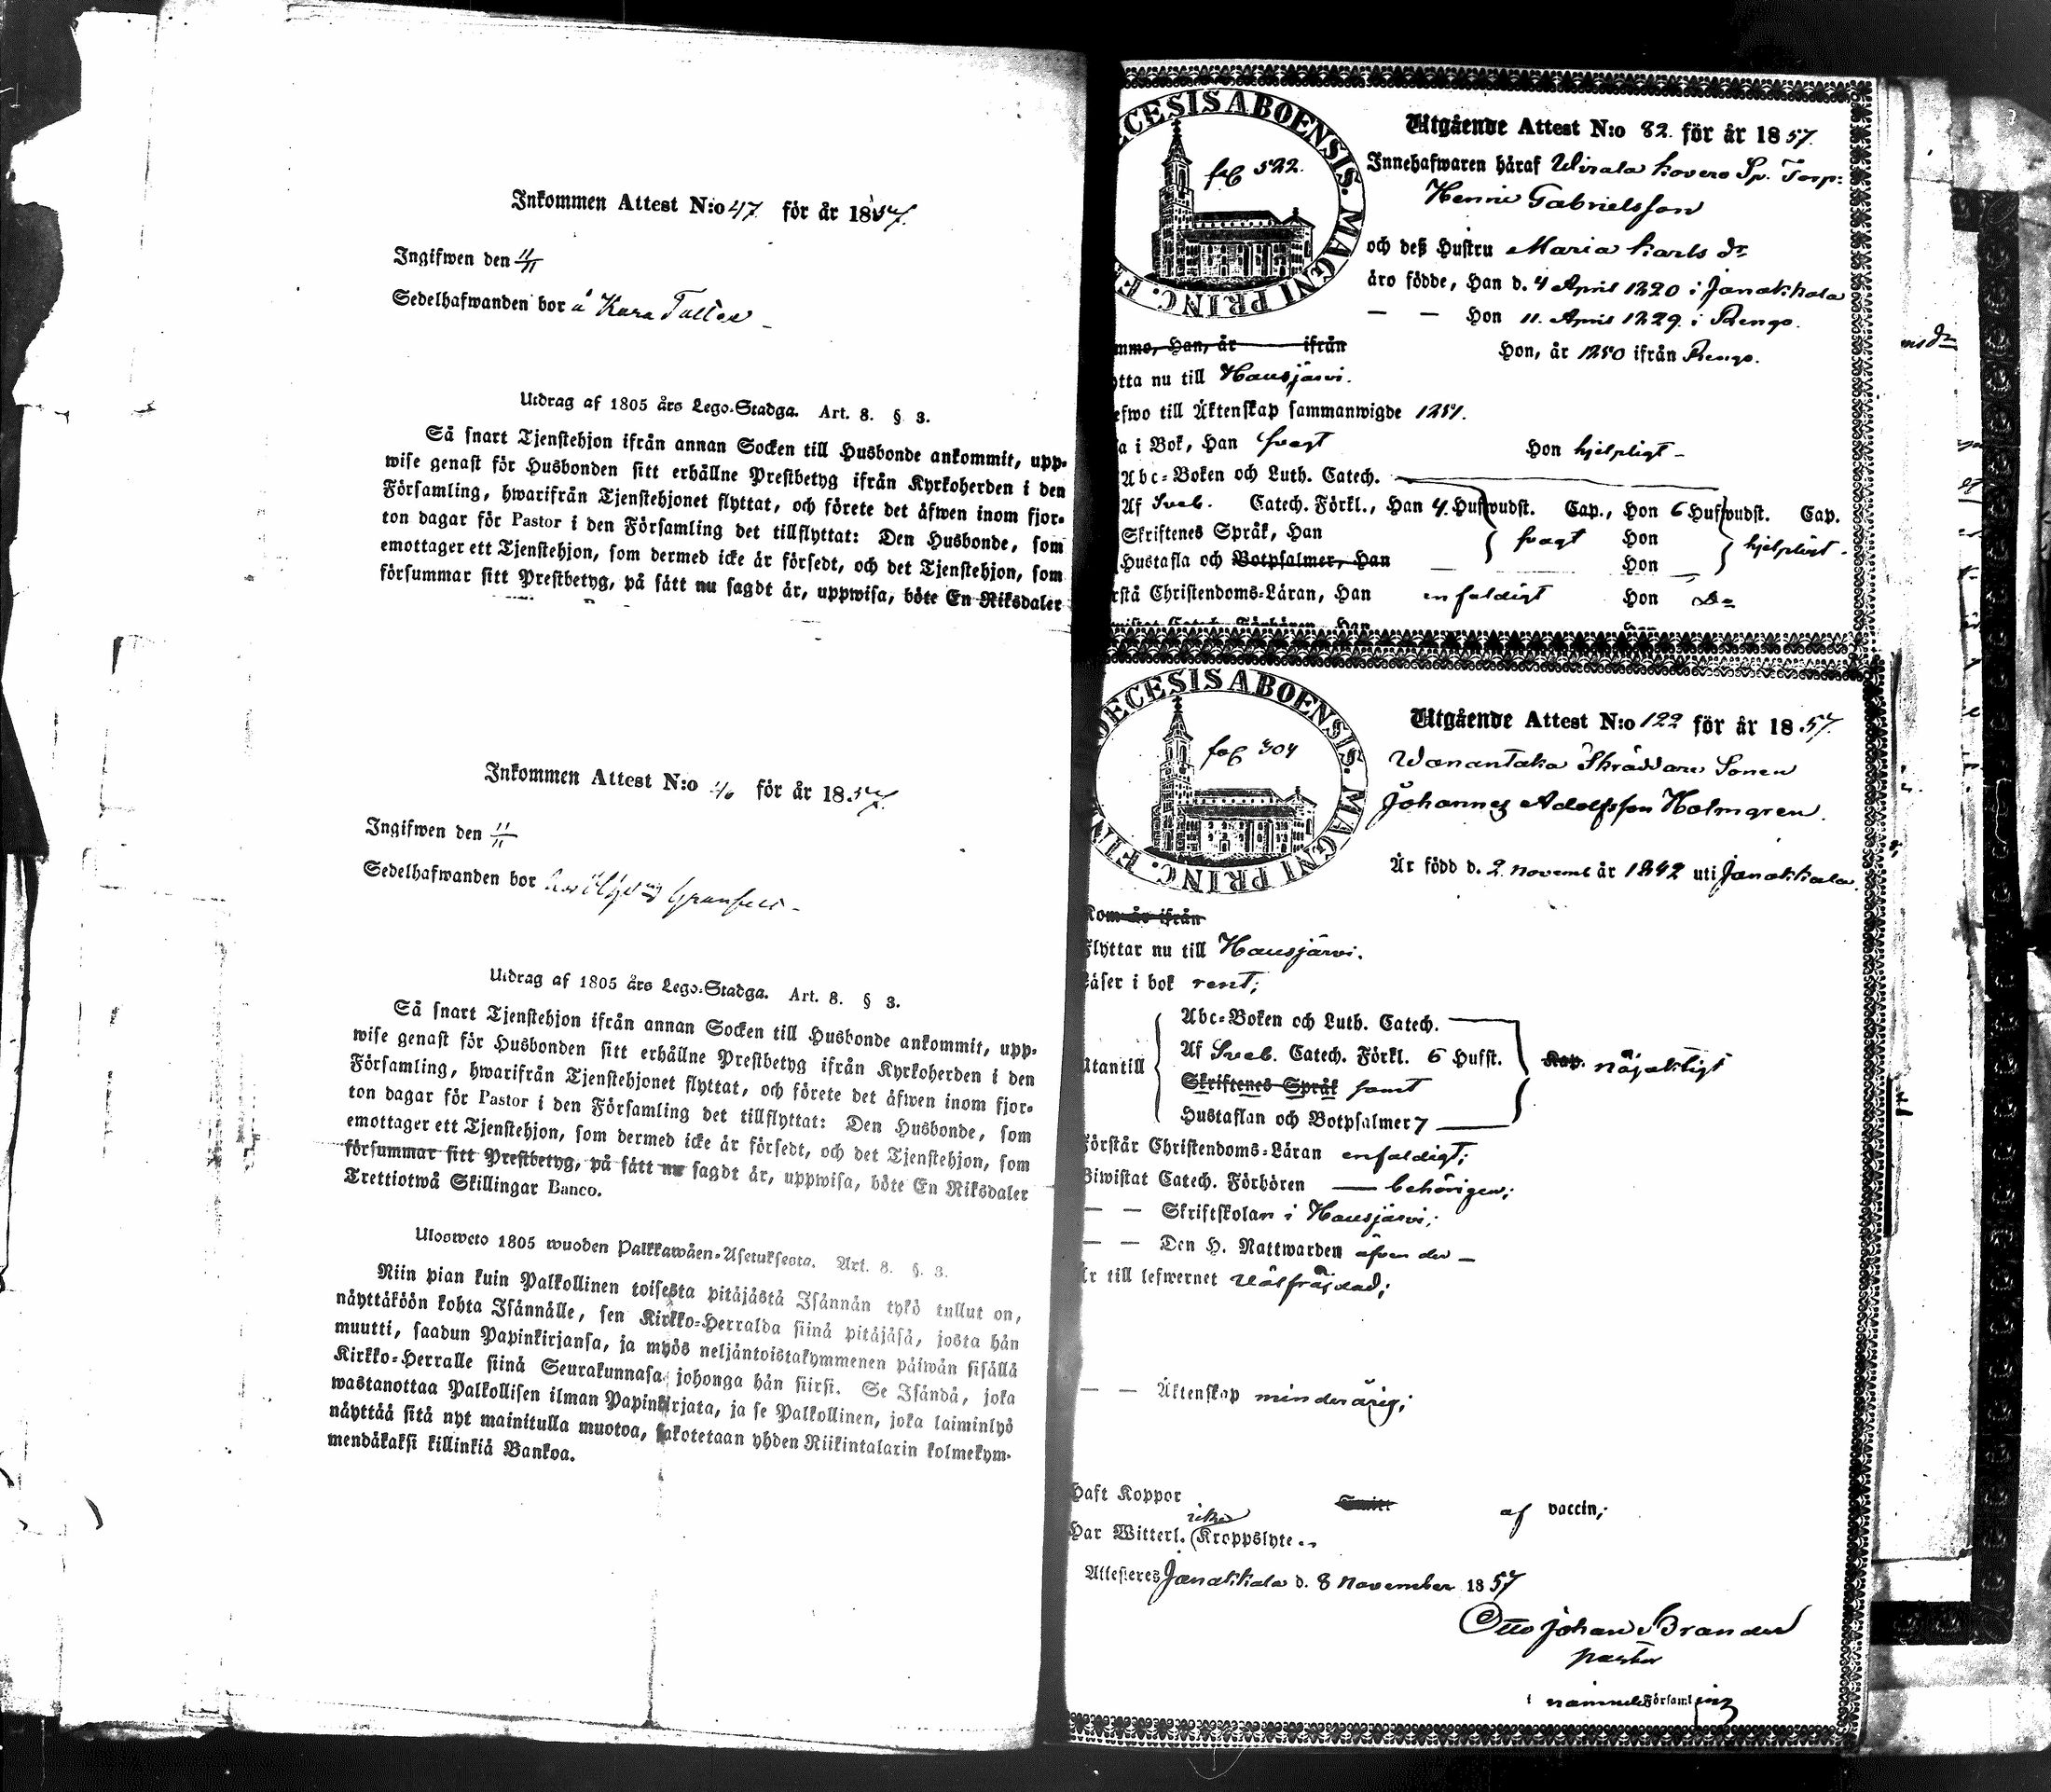 Inkommen Attest N:o 47 för år 1857.
Ingifwen den 11/11
Sedelhafwanden bor å Kara
Utdrag af 1805 års Lego-Stadga. Art. 8. § 3.
Så snart Tjenstehjon ifrån annan Socken till Husbonde ankommit, upp-
wise genast för Husbonden sitt erhållne Prestbetyg ifrån Kyrkoherden i den
Församling, hwarifrån Tjenstehjonet flyttat, och förete det äfwen inom fjor-
ton dagar för Pastor i den Församling det tillflyttat: Den Husbonde, som
emottager ett Tjenstehjon, som dermed icke är försedt, och det Tjenstehjon, som
försummar sitt Prestbetyg, på sätt nu sagdt är, uppwisa, böte En Riksdaler
Inkommen Attest N:o för år 1857.
Ingifwen den 11/11
Sedelhafwanden bor
Utdrag af 1805 års Lego-Stadga. Art. 8. § 3.
Så snart Tjenstehjon ifrån annan Socken till Husbonde ankommit, upp-
wise genast för Husbonden sitt erhållne Prestbetyg ifrån Kyrkoherden i den
Församling, hwarifrån Tjenstehjonet flyttat, och förete det äfwen inom fjor-
ton dagar för Pastor i den Församling det tillflyttat: Den Husbonde, som
emottager ett Tjenstehjon, som dermed icke är försedt, och det Tjenstehjon, som
försummar sitt Prestbetyg, på sätt nu sagdt är, uppwisa, böte En Riksdaler
Trettiotwå Skillingar Banco.
Ulosweto 1805 wuoden Palkkawäen-Asetuksesta. Art. 8. §. 3.
Niin pian kuin Palkollinen toisesta pitäjästä Isännän tykö tullut on,
näyttäköön kohta Isännälle, sen Kirkko-Herralda siinä pitäjäsä, josta hän
muutti, saadun Papinkirjansa, ja myös neljäntoistakymmenen päiwän sisällä
Kirkko-Herralle siinä Seurakunnasa johonga hän siirsi. Se Isändä, joka
wastanottaa Palkollisen ilman Papinkirjata, ja se Palkollinen, joka laiminlyö
näyttää sitä nyt mainitulla muotoa, sakotetaan yhden Riikintalarin kolmekym-
mendäkaksi killinkiä Bankoa.
ECESIS ABOENSIS. MAGNI PRINC. F
fol 522.
Utgående Attest N:o 82. för år 1857.
Innehafwaren häraf Wirala Kovero Sp. Torp:
Henric Gabrielsson
och deß Hustru Maria Karls dr
äro födde, Han d. 4 April 1820 i Janakkala
— — Hon 11. April 1829. i Rengo.
mmo, Han, år ifrån Hon, år 1850 ifrån Rengo.
ytta nu till Hausjärvi.
efwo till Äktenskap sammanwigde 1851.
a i Bok, Han svagt Hon hjelpligt
Abc-Boken och Luth. Catech.
Af Sveb. Catech. Förkl., Han 4. Hufwudst. Cap., Hon 6 Hufwudst. Cap.
Skriftenes Språk, Han svagt Hon hjelpligt
Hustafla och Botpsalmer, Han Hon
rstå Christendoms-Läran, Han enfaldigt Hon Do
DECESIS ABOENSIS. MAGNI PRINC. FIN
fol 304
Utgående Attest N:o 122 för år 1857.
Wanantaka Skräddare Sonen
Johannes Adolfsson Holmgren.
Är född d. 2. Novemb år 1842 uti Janakkala.
Kom år ifrån
Flyttar nu till Hausjärvi.
Läser i bok rent;
Abc-Boken och Luth. Catech.
Utantill Af Sveb. Catech. Förkl. 6 Hufst. Kap. nöjaktligt
Skriftenes Språk samt
Hustaflan och Botpsalmer 7
Förstår Christendoms-Läran enfaldigt;
Biwistat Catech. Förhören — behörigen;
— — Skriftskolan i Hausjärvi;
— — Den H. Nattwarden äfven der —
Är till lefwernet välfräjdad;
— — Äktenskap minderårig;
Haft Koppor af vaccin;
Har Witterl. icke Kroppslyte
Attesteres Janakkala d. 8 November 1857
Otto Johan Brander
Pastor
i nämnde Församling